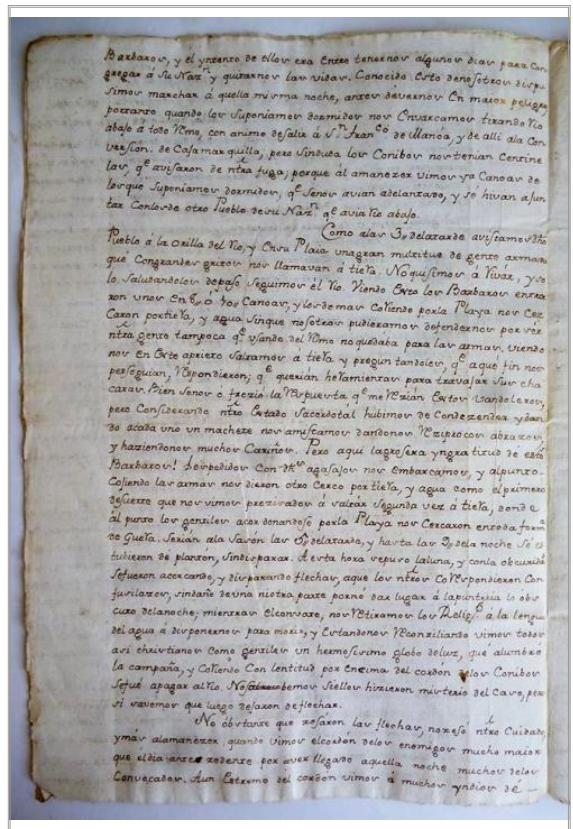 Barbaros, y él yntento de ellos era Entretenernos algunos dias para Con
gregar á su Naz.n y quitarnos las vidas. Conocido Esto denosotros dispu
simos marchar á quella misma noche, antes devernos En maior peligro,
portanto quando los suponiamos dormidos nos Envarcamos tirando Rio
abajo á todo Rmo, con animo desalir á S.n Fran.co de Manoa, y de alli ala Con
version. de Cajamarquilla, pero sinduda los Conibos nos tenian Centine
las, q.e avisaron de ntra fuga; porque al amanezer vimos ya Canoas de
losque suponiamos dormidos, q.e Senos avian adelantado, y se hivan ajun
tar Conlosde otro Pueblo desu Naz.n q.e avia Rio abajo.
Como alas 3, delatarde avistamos dho
Pueblo á la Orilla del Rio, y Ensu Plaia unagran multitud de gente armada
qué Congrandes gritos nos llamavan á tierra. Noquisimos á Rivár, y so
lo saludandolos depaso seguimos él Rio. Viendo Esto los Barbaros entra
ron unos En 6, o 7os Canoas, y losdemas Coriendo porla Playa nos Cer
Caron portierra, y agua sinque nosotros pudieramos defendernos por ser
ntra gente tampoca q.e usando del Rmo noquedaba para las armas, viendo
nos en Este aprieto saltamos á tierra y preguntandoles, q.e aqué fin nos
perseguian, Respondieron; q.e querián herramientas para travajar sus cha
caras. Bien Senos ó frezió la Respuesta q.e merezián Estos Vandoleros,
pero Considerando ntro Estado Sacerdotal húbimos de Condezender y dan
do acada uno un machete nos amistamos dandonos Reziprocos abrazos,
y haziendonos muchos Cariños. Pero aquí lagrosera yngratitud de estos
Barbaros! Despedidos Con dhos agasajos nos Embarcamos, y alpunto
Cojiendo las armas nos dieron otro Cerco por tierra, y agua como el primero
desuerte que nos vimos prezisados á saltár Segunda vez á tierra, donde
ál punto los gentiles acordonandose porla Playa nos Cercaron entoda forma
de Guerra. Serián ala sazón las 5, delatarde, y hasta las 9, dela noche Se es
tubieron de plantón, sindisparar. A esta hora sepuso laluna, y conla obscuridad
sefueron acercando, y disparando flechas, aque los ntros Correspondieron Con
fusilazos, sindaño deuna niotra parte porno dar lugar á lapunteria lo obs
curo delanoche; mientras elconvate, nos Retiramos los Relig.s á la lengua
del agua á disponernos para morir, y Estandonos Reconziliando vimos todos
asi christianos como gentiles un hermosisimo globo deluz, que alumbro
la campaña, y Coriendo Con lentitud por Encima del cordón delos Conibos
sefué apagar al Rio. Nosabemos siellos hizieron misterio del Caso, pero
si savemos que luego dejaron deflechar.
No obstante que zesaron las flechas, nozesó ntro Cuidado,
ymás alamanezer, quando vimos elcordón delos enemigos mucho maior
que eldia antezedente por aver llegado aquella noche muchos delos
Convocados. Aun Estremo del cordon vimos á muchos yndios dé